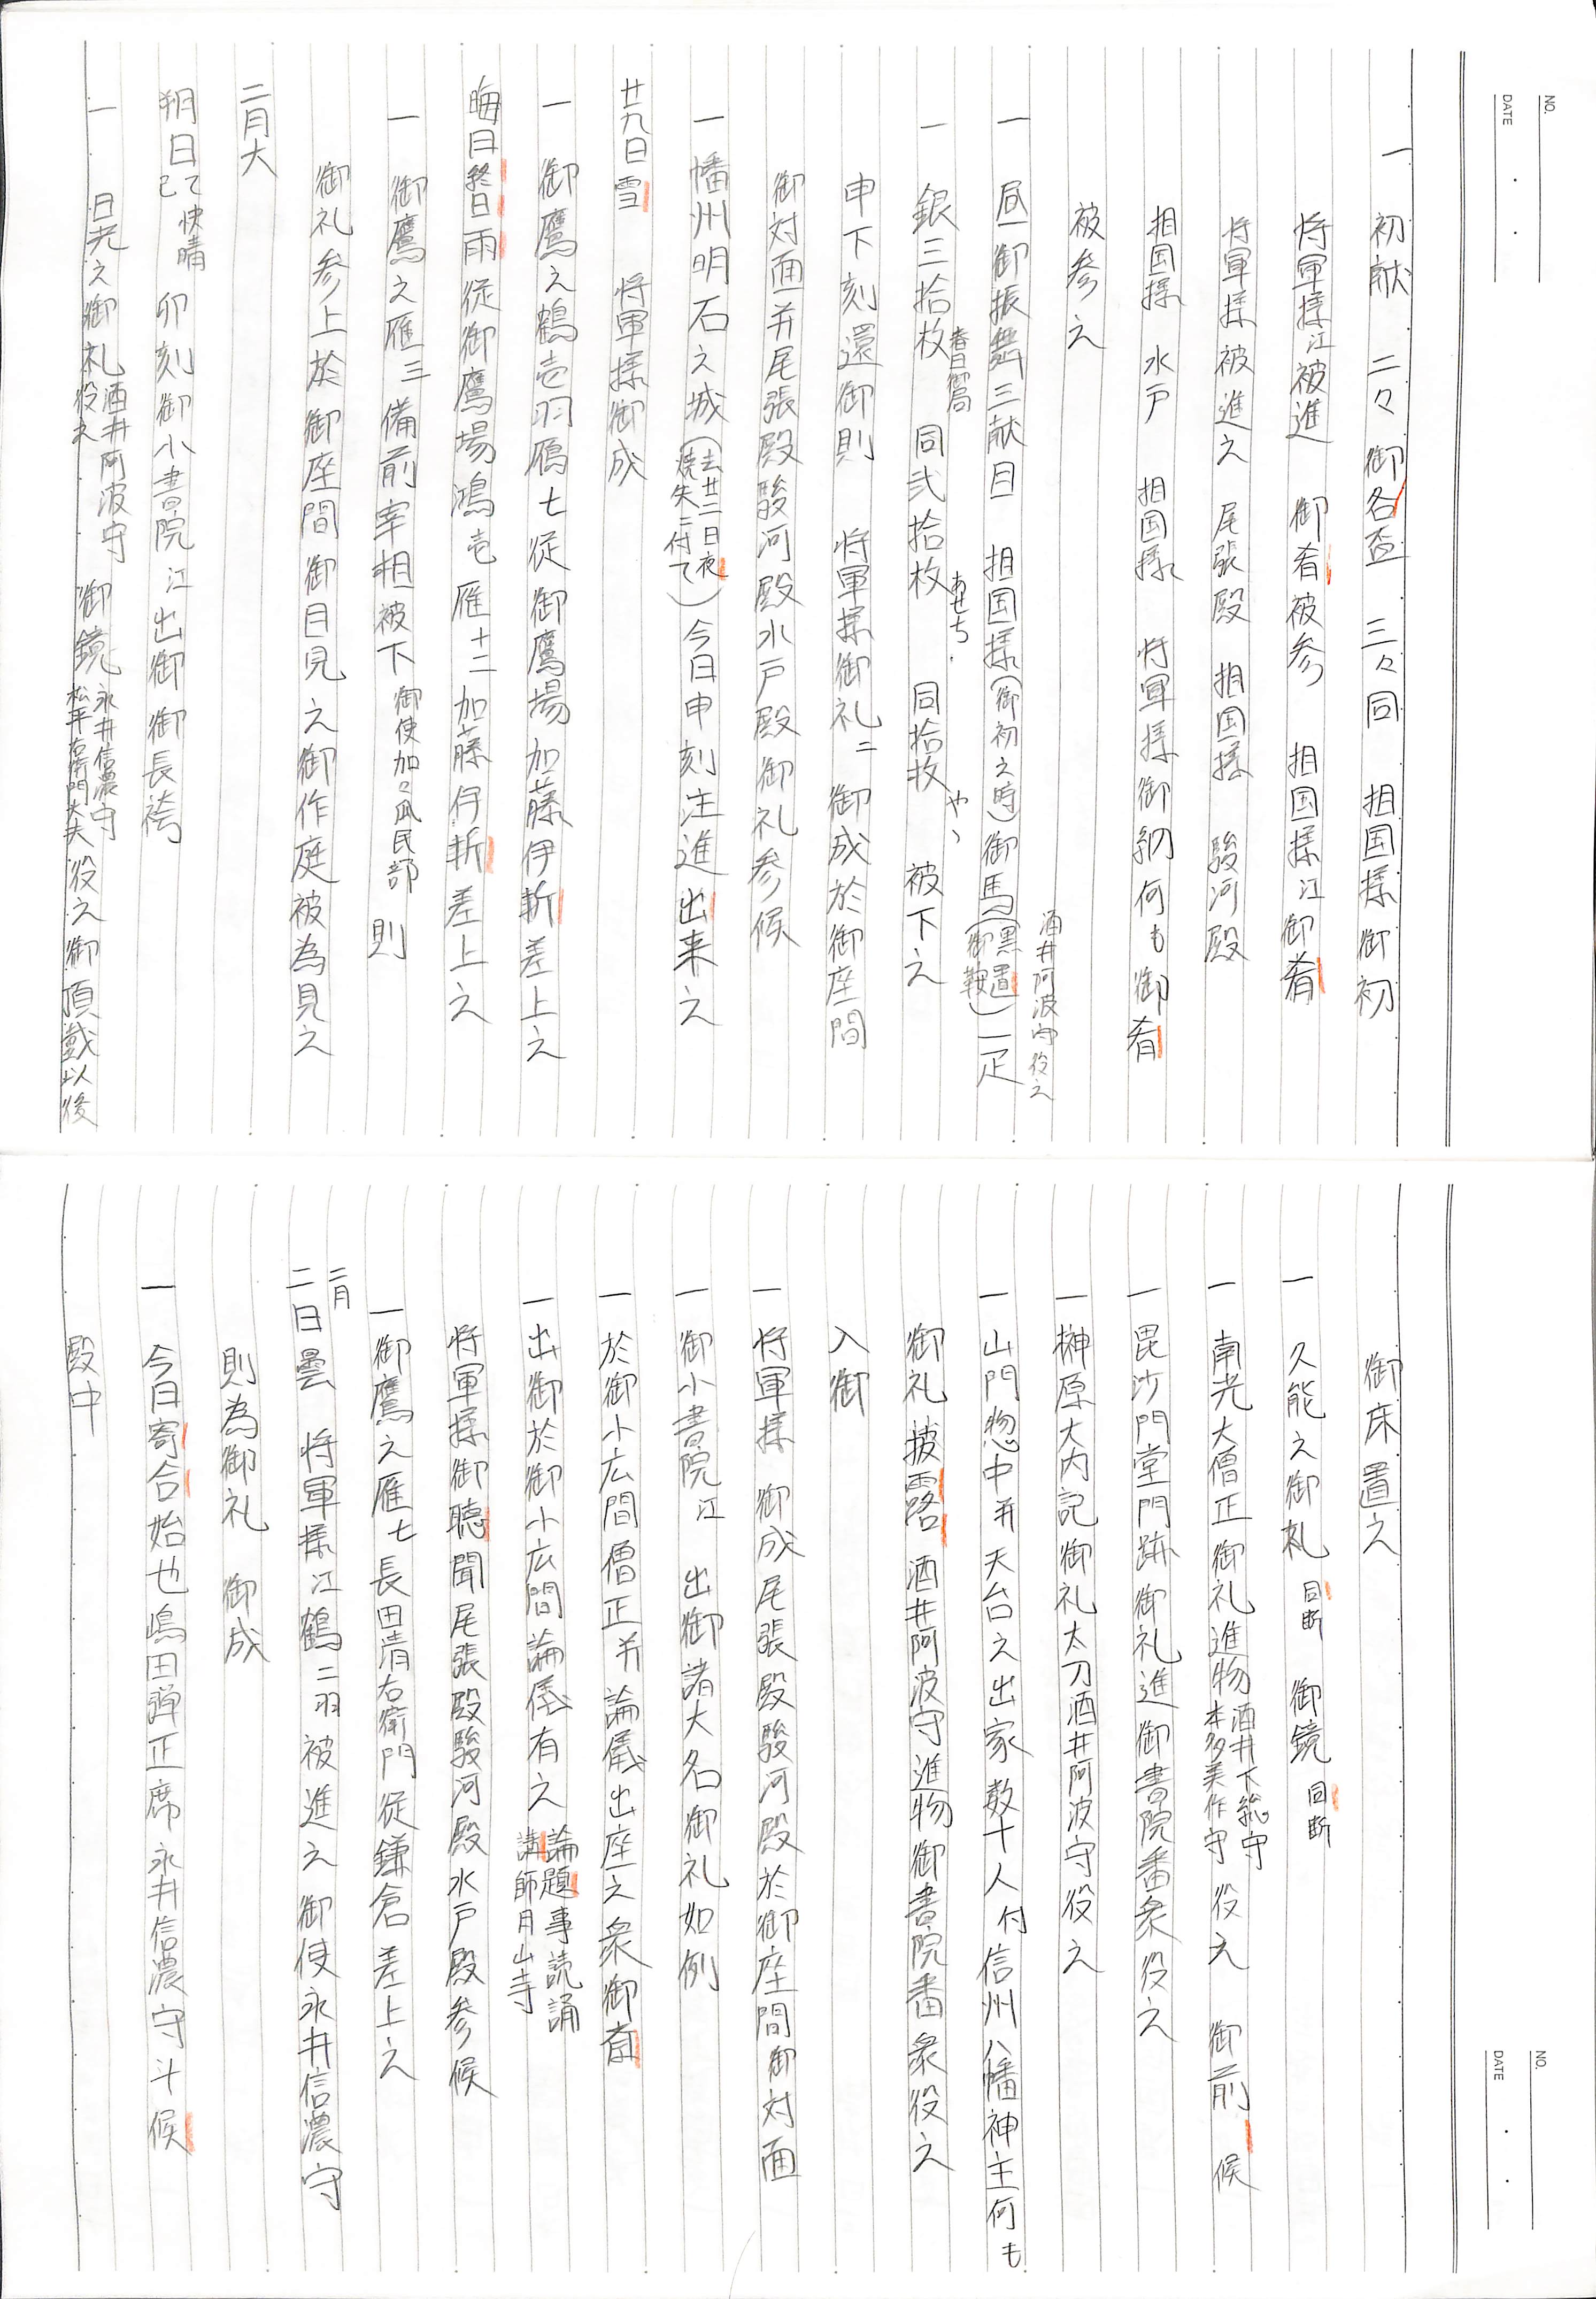 NO.
DATE
一 初献 二々 御各盃 三々同 相国様御初
将軍様江被進 御肴被参 相国様江御肴
将軍様被進之 尾張殿 相国様 駿河殿
相国様 水戸 相国様 将軍様御納何も御肴
被参之
酒井阿波守役之
一 昼御振舞三献目 相国様(御初之時)御馬(黒置御鞍)一疋
銀三拾枚 春日御局 同弐拾枚 あせち 同拾枚 やゝ 被下之
申下刻還御則 将軍様御礼ニ 御成於御座間
御対面并尾張殿駿河殿水戸殿御礼参候
一 幡州明石之城(去廿二日夜焼失ニ付て)今日申刻注進出来之
廿九日雪 将軍様御成
一 御鷹之鶴壱羽鴈七従御鷹場加藤伊斬差上之
晦日終日雨従御鷹場鴻壱雁十二加藤伊斬差上之
一 御鷹之雁三 備前宰相被下 御使加々爪民部 則
御礼参上於御座間御目見之御作庭被為見之
二月大
朔日己て快晴 卯刻御小書院江出御御長袴
一 日光之御礼 酒井阿波守役之 御鏡 永井信濃守 松平右衛門大夫 役之御頂戴以後
NO.
DATE
御床置之
一 久能之御礼 同断 御鏡 同断
一 南光大僧正御礼進物 酒井下総守 本多美作守 役之 御前 候
一 毘沙門堂門跡御礼進御書院番衆役之
一 榊原大内記御礼太刀酒井阿波守役之
一 山門惣中并天台之出家数十人付信州八幡神主何も
御礼披露 酒井阿波守進物御書院番衆役之
入御
一 将軍様 御成尾張殿駿河殿於御座間御対面
一 御小書院江 出御諸大名御礼如例
一 於御小広間僧正并論儀出座之衆御斎
一 出御於御小広間論儀有之 論題事読誦 講師月山寺
将軍様御聴聞尾張殿駿河殿水戸殿参候
一 御鷹之雁七長田清右衛門従鎌倉差上之
二月
二日曇 将軍様江鶴二羽被進之御使永井信濃守
則為御礼 御成
一 今日寄合始也嶋田弾正席永井信濃守斗候
殿中